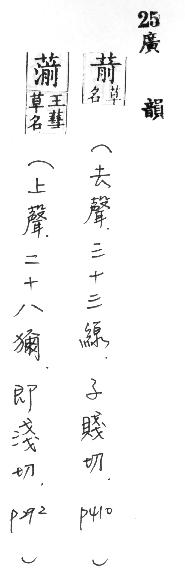 25廣韻
葥 草名 (去聲.三十三線.子賤切.p410)
王彗草名 (上聲.二十八獮.即淺切.p292)